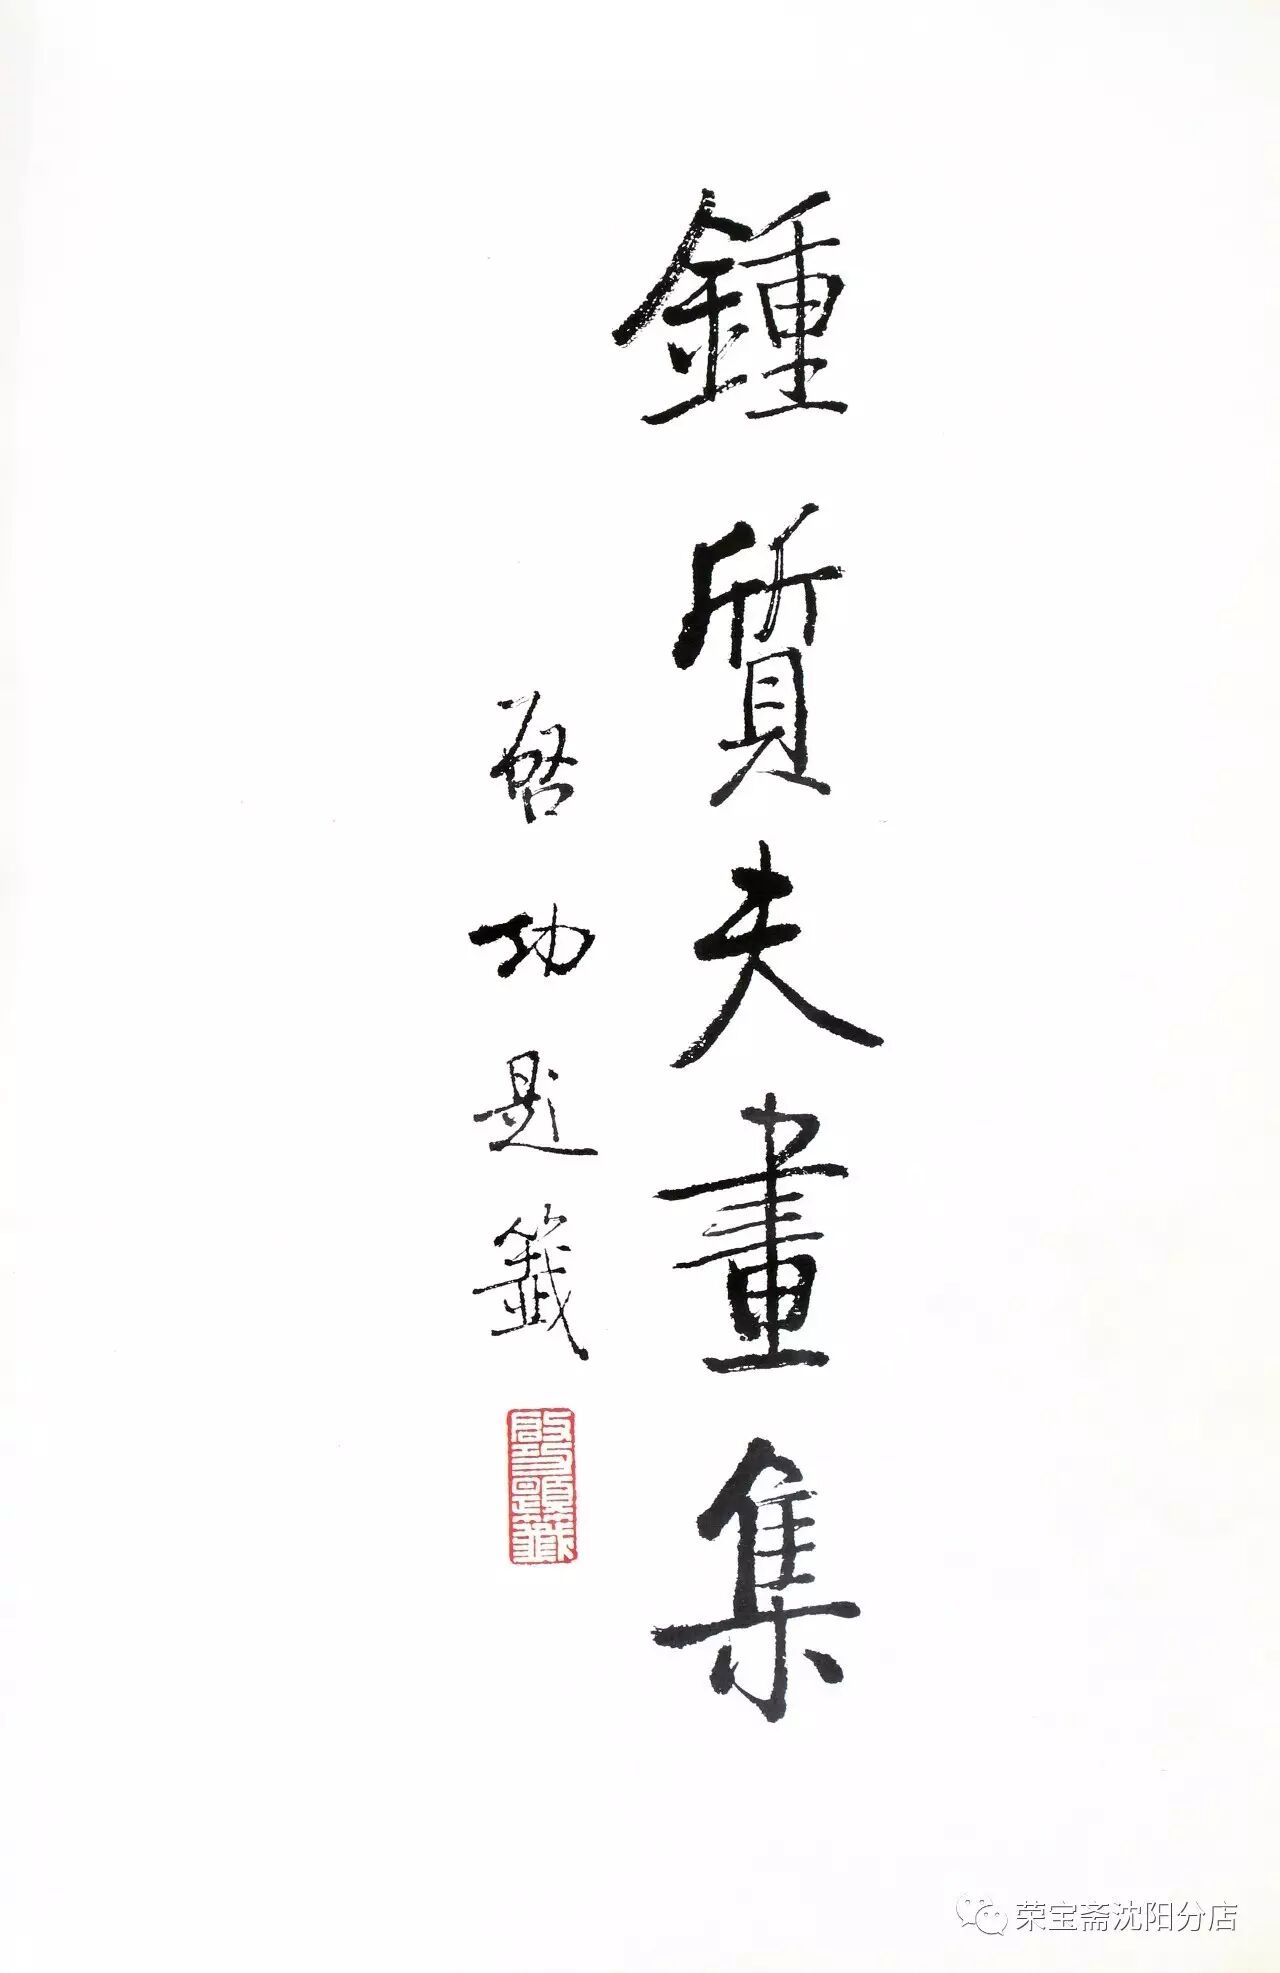 鍾質夫畫集
啓功題籤
荣宝斋沈阳分店